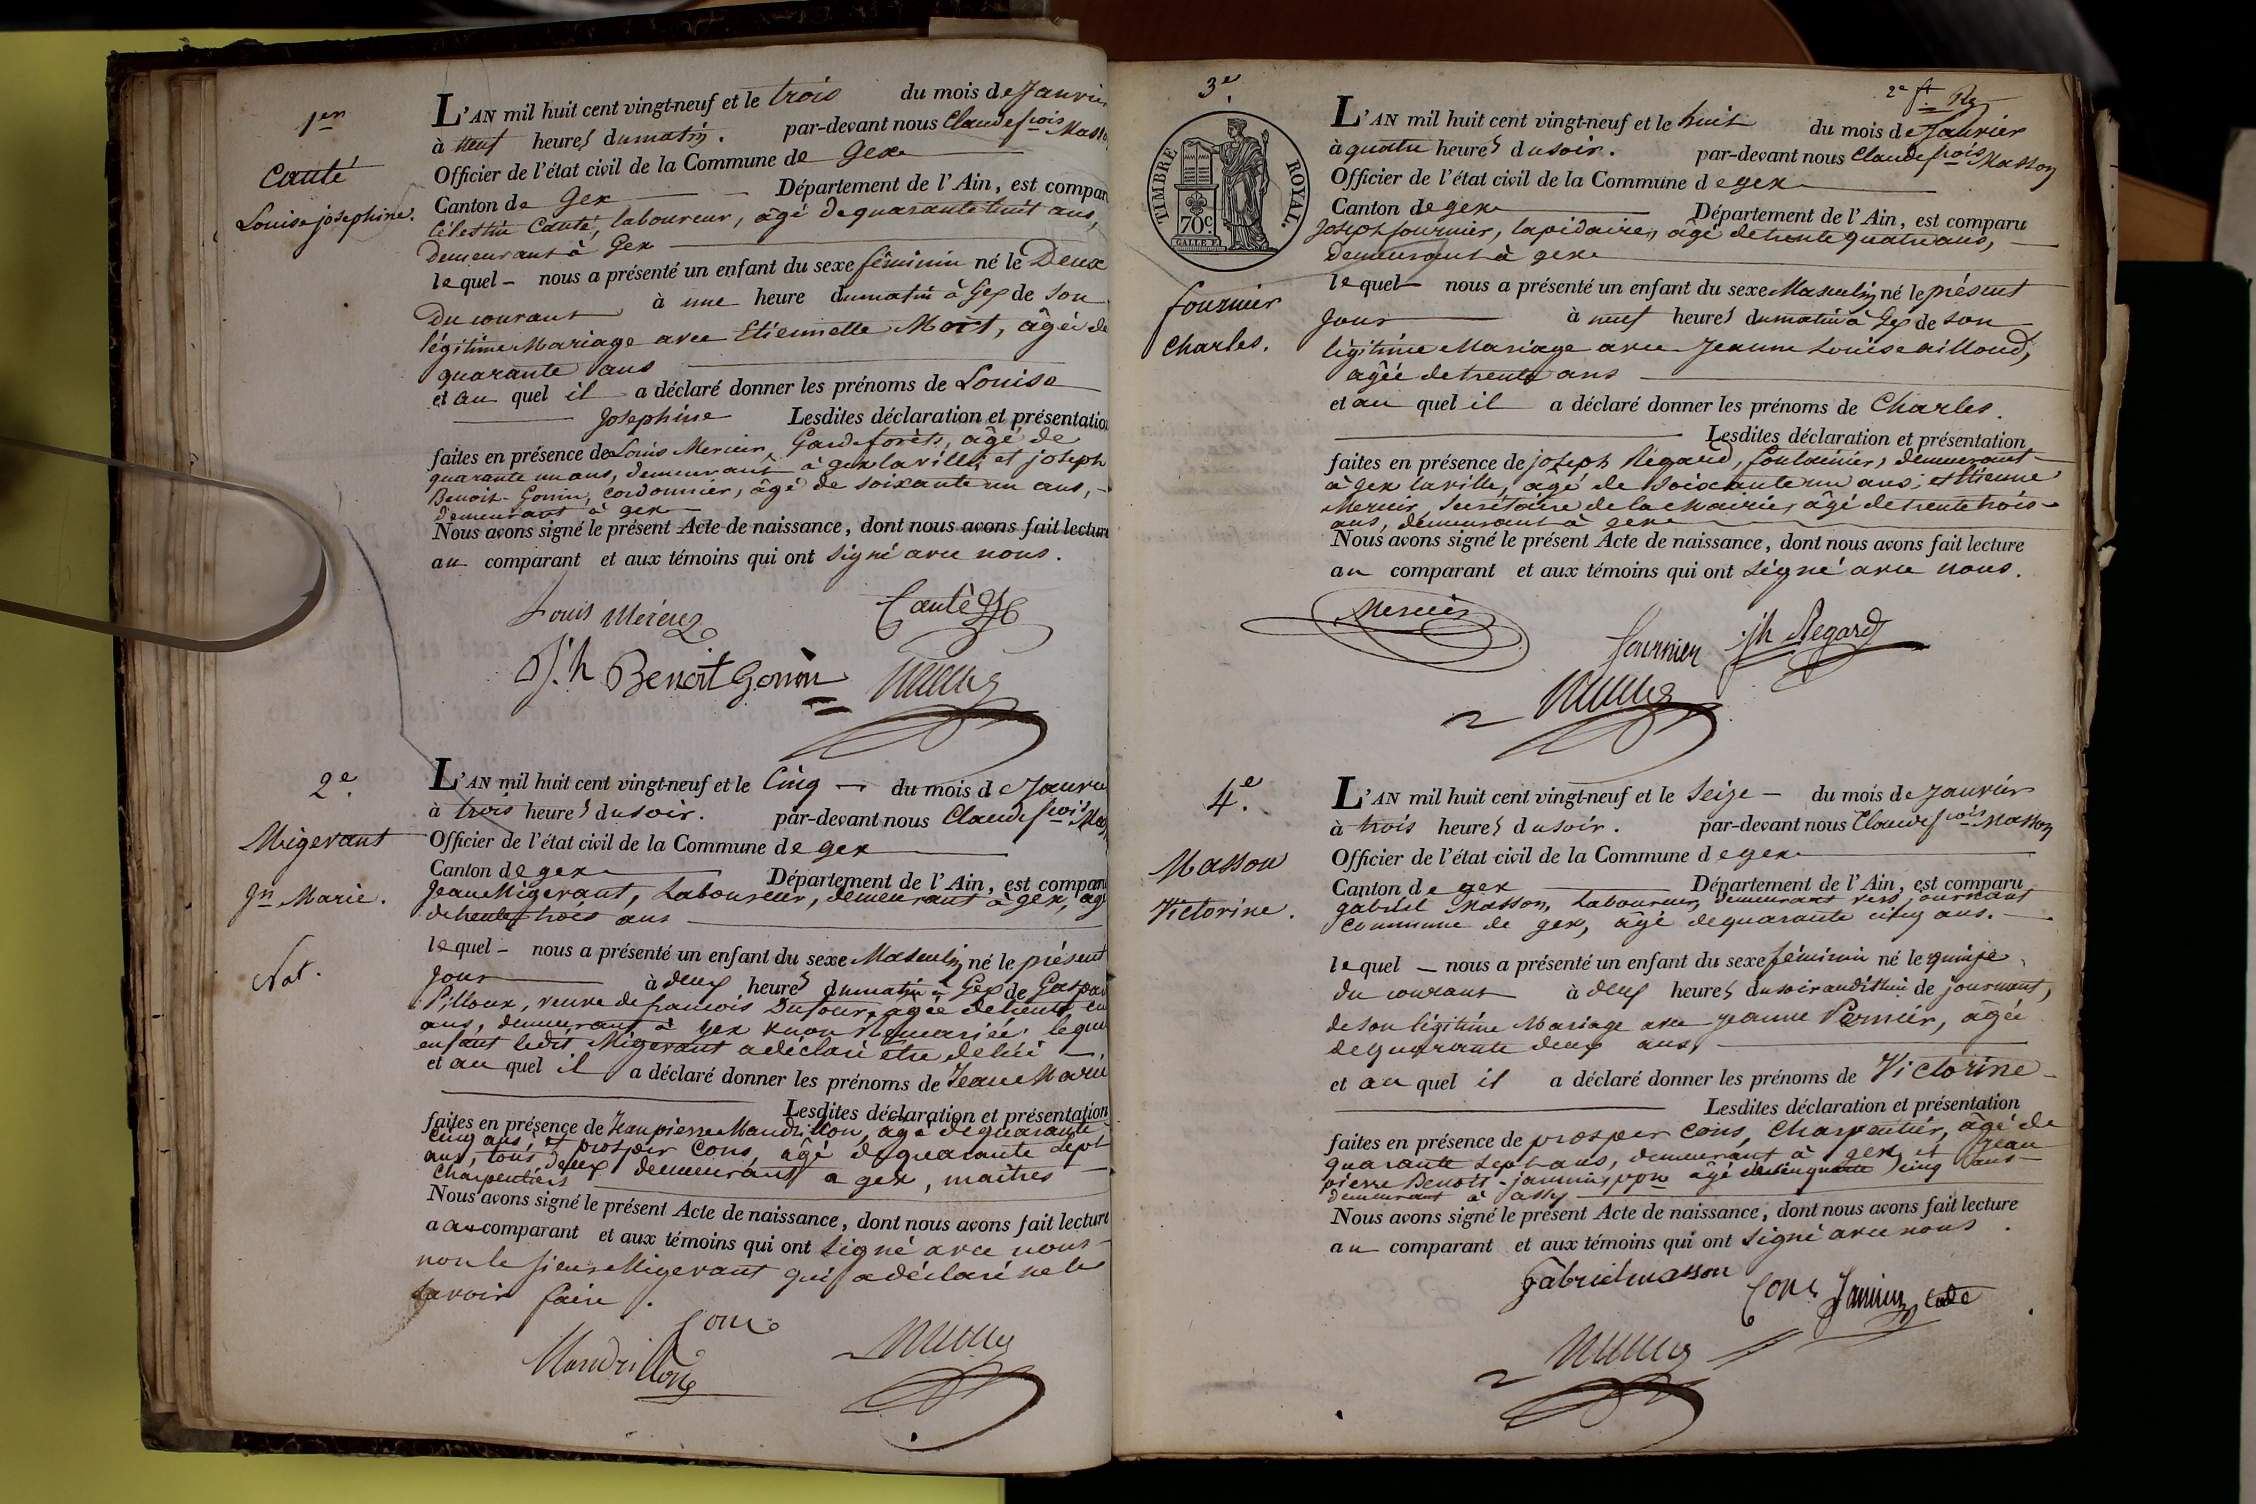 1er
Cauté
Louise josephine.
L'AN mil huit cent vingt-neuf et le trois du mois de Janvier
à neuf heures du matin. par-devant nous Claude fçois Masson
Officier de l'état civil de la Commune de Gex
Canton de Gex Département de l'Ain, est compar
Célestin Cauté, laboureur, âgé de quarante huit ans,
demeurant à Gex
lequel nous a présenté un enfant du sexe féminin né le Deux
du courant à une heure du matin à Gex de son
légitime Mariage avec Etiennette Mort, âgée de
quarante ans
et au quel il a déclaré donner les prénoms de Louise
Josephine Lesdites déclaration et présentation
faites en présence de Louis Mercier, Garde forêts, âgé de
quarante un ans, demeurant à gex la ville, et joseph
Benoit-Gonin, cordonnier, âgé de soixante un ans,
demeurant à gex
Nous avons signé le présent Acte de naissance, dont nous avons fait lecture
au comparant et aux témoins qui ont signé avec nous.
Louis Mercier Cauté
Jh Benoit Gonin
2e.
Migerant
Jn Marie.
Nat.
L'AN mil huit cent vingt-neuf et le Cinq du mois de Janvie
à trois heures du soir. par-devant nous Claude fçois Mass
Officier de l'état civil de la Commune de gex
Canton de gex Département de l'Ain, est compar
Jean Migerant, Laboureur, demeurant à gex, âgé
de trente trois ans
lequel nous a présenté un enfant du sexe Masculin né le présent
jour à deux heures du matin à Gex de Gaspar
Pilloux, veuve de francois Dufour, agée de trente
ans, demeurant à gex & non Remariée. lequel
enfant ledit Migerant a déclaré être de lui
et au quel il a déclaré donner les prénoms de Jean Marie
Lesdites déclaration et présentation
faites en présence de Jean pierre Mandrillon, âgé de quarante
cinq ans, et prosper Cons, âgé de quarante sept
ans, tous deux demeurant a gex, maitres
Charpentiers
Nous avons signé le présent Acte de naissance, dont nous avons fait lecture
au comparant et aux témoins qui ont signé avec nous
non le sieur Migerant qui a déclaré ne le
savoir faire.
Cons
Mandrillon
3e
2e ft. Rg
TIMBRE ROYAL.
70c
fournier
Charles.
L'AN mil huit cent vingt-neuf et le huit du mois de Janvier
à quatre heures du soir. par-devant nous Claude fçois Masson
Officier de l'état civil de la Commune de gex
Canton de gex Département de l'Ain, est comparu
Joseph fournier, lapidaire, âgé de trente quatre ans,
demeurant à gex
lequel nous a présenté un enfant du sexe Masculin né le présent
jour à neuf heures du matin à Gex de son
légitime Mariage avec Jeanne Louise ailloud,
âgée de trente ans
et au quel il a déclaré donner les prénoms de Charles.
Lesdites déclaration et présentation
faites en présence de joseph Régard, fontainier, demeurant
à gex la ville, âgé de soixante un ans, et Etienne
Mercier, Secrétaire de la Mairie, âgé de trente trois
ans, demeurant à gex
Nous avons signé le présent Acte de naissance, dont nous avons fait lecture
au comparant et aux témoins qui ont signé avec nous.
Mercier
fournier jh Regard
4e.
Masson
Victorine.
L'AN mil huit cent vingt-neuf et le Seize du mois de Janvier
à trois heures du soir. par-devant nous Claude fçois Masson
Officier de l'état civil de la Commune de gex
Canton de gex Département de l'Ain, est comparu
gabriel Masson, Laboureur, demeurant vers journant
commune de gex, âgé de quarante cinq ans.
lequel nous a présenté un enfant du sexe féminin né le quinze
du courant à deux heures du soir audit lieu de journant,
de son légitime Mariage avec jeanne Pernier, âgée
de quarante deux ans,
et au quel il a déclaré donner les prénoms de Victorine
Lesdites déclaration et présentation
faites en présence de prosper Cons, Charpentier, âgé de
quarante sept ans, demeurant à gex, et jean
pierre Benoit-jannin, âgé cinquante cinq ans
demeurant à
Nous avons signé le présent Acte de naissance, dont nous avons fait lecture
au comparant et aux témoins qui ont signé avec nous.
gabriel masson Cons Jannin